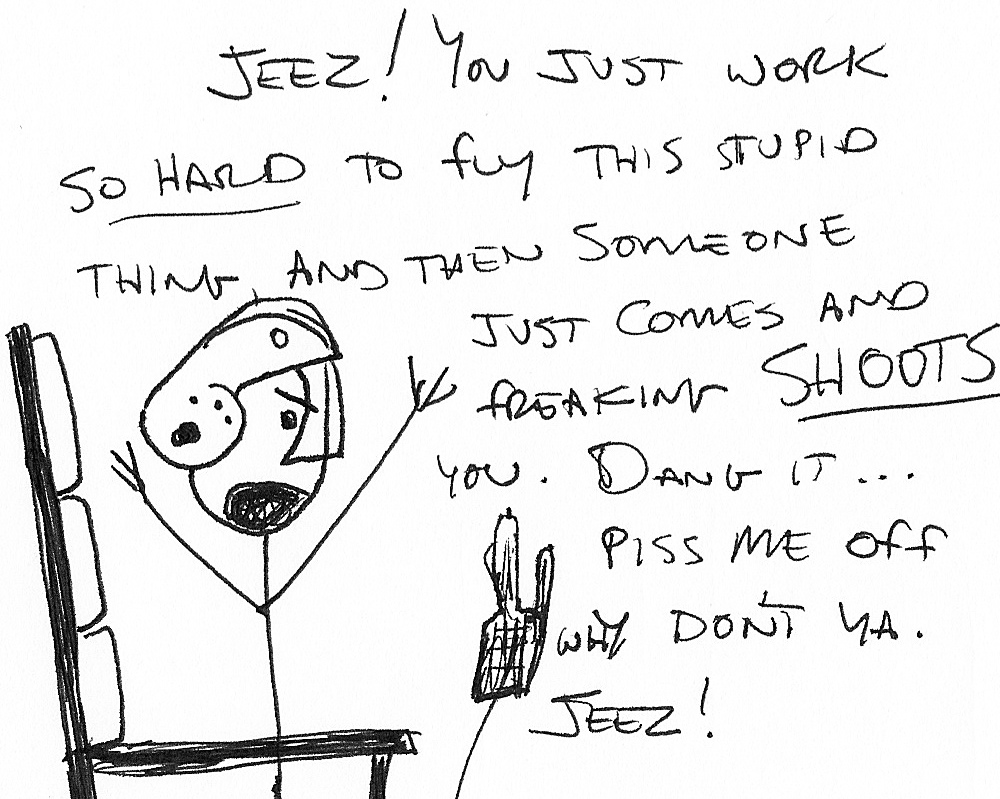 JEEZ! YOU JUST WORK
SO HARD TO fly THIS STUPID
THING, AND THEN SOMEONE
JUST COMES AND
fREAKING SHOOTS
YOU. DANG IT...
PISS ME Off
WHY DON'T YA.
JEEZ!